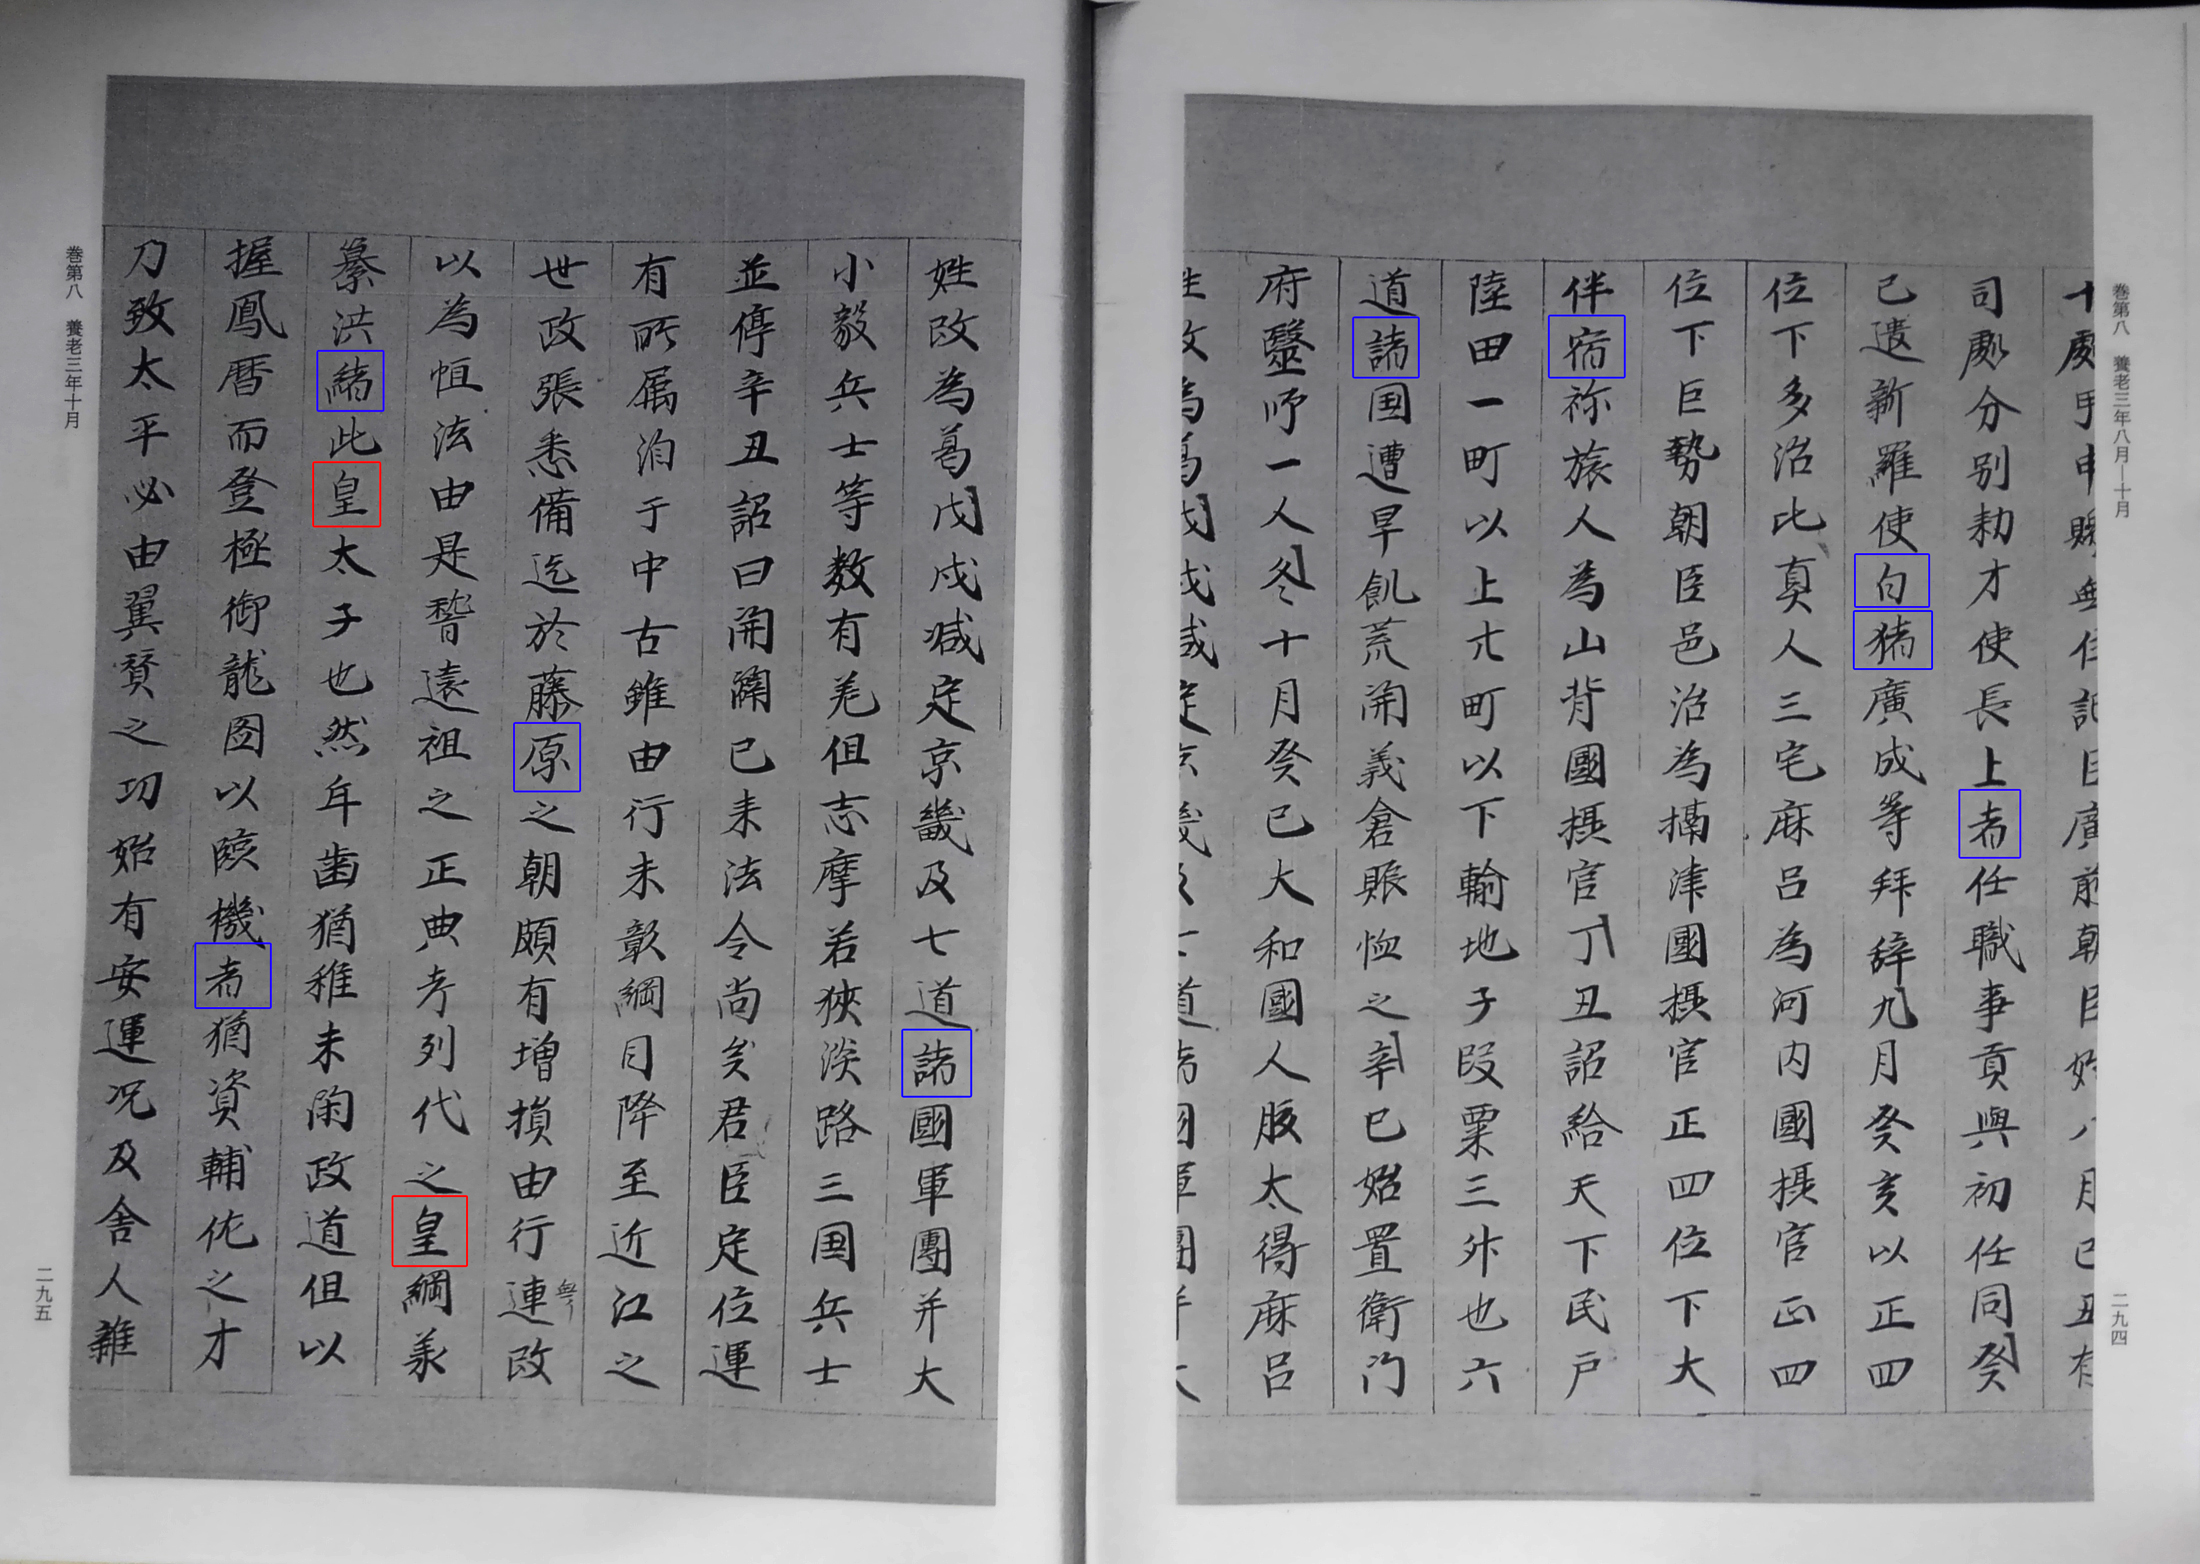 巻第八　養老三年八月―十月
司處分別勅才使長上者任職事貢與初任同癸
已遣新羅使白猪廣成等拜辞九月癸亥以正四
位下多治比真人三宅麻呂為河内國摂官正四
位下巨勢朝臣邑治為攝津國摂官正四位下大
伴宿祢旅人為山背國摂官丁丑詔給天下民戸
陸田一町以上廿町以下輸地子段粟三升也六
道諸国遭旱飢荒開義倉賑恤之辛巳始置衛門
府醫师一人冬十月癸巳大和國人腹太得麻呂
二九四
姓改為葛戊戌减定京畿及七道諸國軍團并大
小毅兵士等数有差但志摩若狹淡路三国兵士
並停辛丑詔曰開闢已来法令尚矣君臣定位運
有所属洎于中古雖由行未彰綱目降至近江之
世改張悉備迄於藤原之朝頗有増損由行連無改
以為恒法由是稽遠祖之正典考列代之皇綱承
纂洪緒此皇太子也然年歯猶稚未閑政道但以
握鳳暦而登極御龍图以臨機者猶資輔佐之才
乃致太平必由翼賛之功始有安運况及舎人雜
巻第八　養老三年十月
二九五